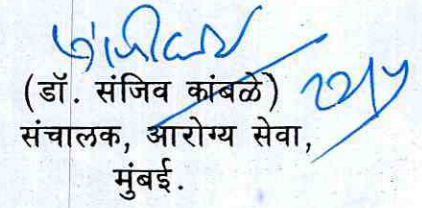 (डॉ. संजिव कांबळे)
संचालक, आरोग्य सेवा,
मुंबई.